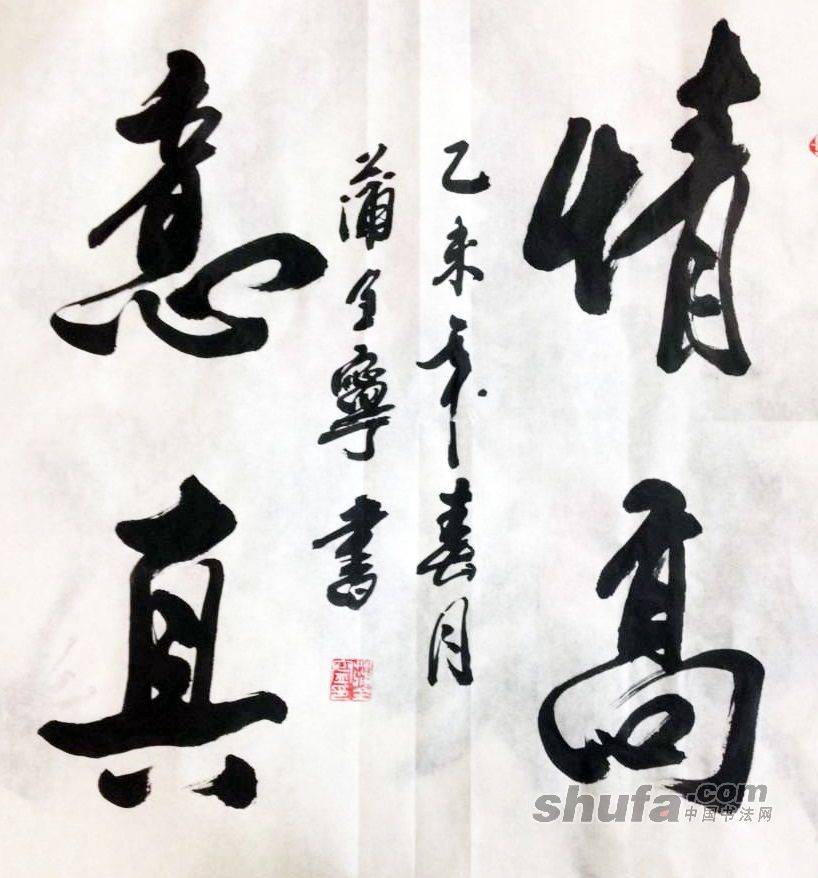 情高
意真
乙未年春月
蒲全寧書
shufa.com
中国书法网